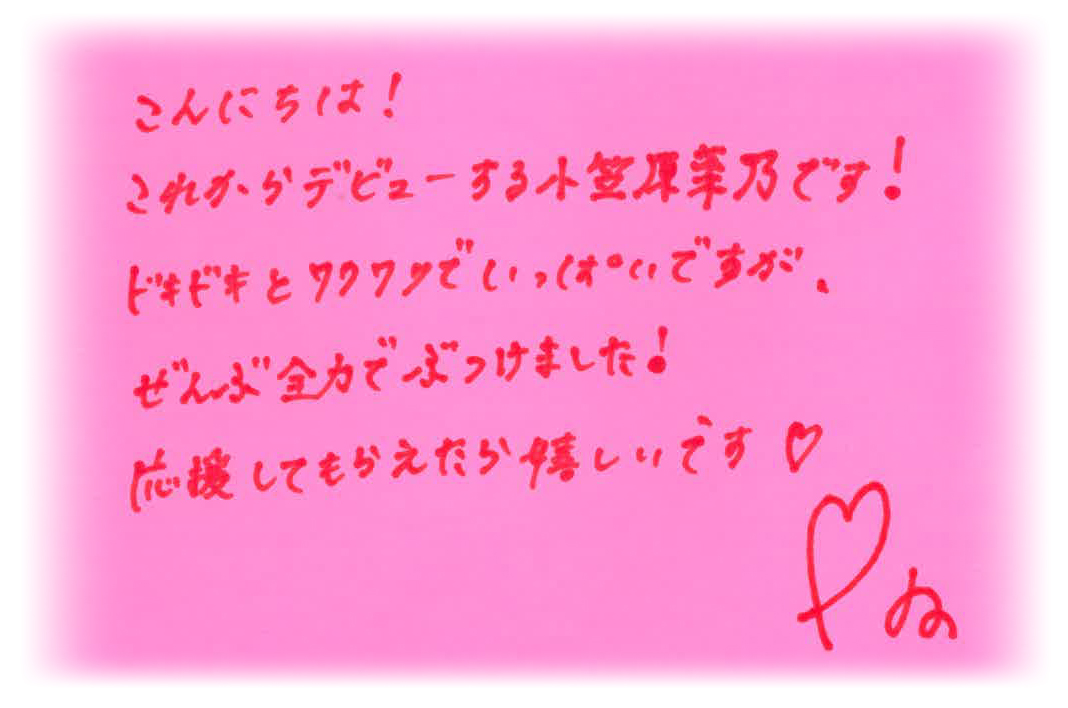 こんにちは！
これからデビューする小笠原菜乃です！
ドキドキとワクワクでいっぱいですが、
ぜんぶ全力でぶつけました！
応援してもらえたら嬉しいです♡